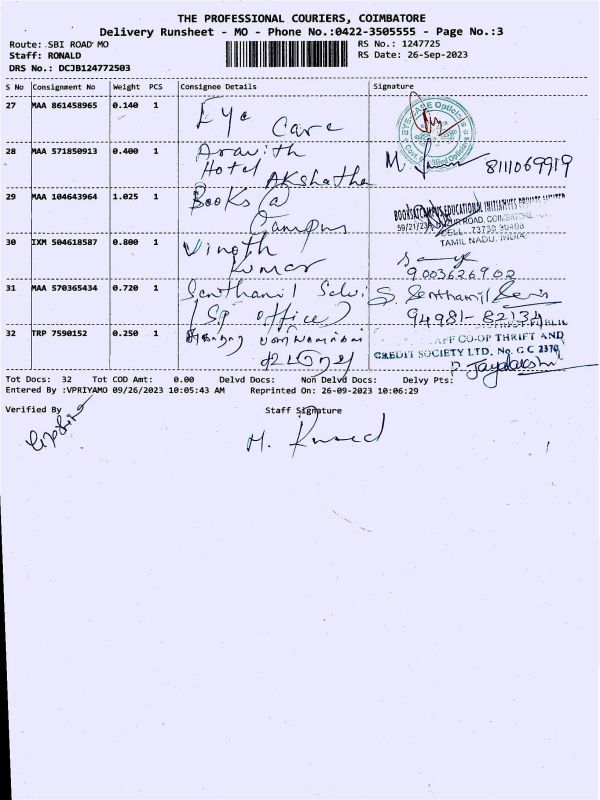 THE PROFESSIONAL COURIERS, COIMBATORE
Delivery Runsheet - MO - Phone No.:0422-3505555 - Page No.:3
Route: SBI ROAD MO
RS No.: 1247725
Staff: RONALD
RS Date: 26-Sep-2023
DRS No.: DCJB124772503
S No Consignment No Weight PCS Consignee Details Signature
27 MAA 861458965 0.140 1 Eye Care
EYE CARE Opticians
28 MAA 571850913 0.400 1 Aravith
Hotel Akshatha
M. 8111069919
29 MAA 104643964 1.025 1 Books @
Campus
BOOKSATCAMPUS EDUCATIONAL INITIATIVES PRIVATE LIMITED
ROAD, COIMBATORE
CELL: 73730 30408
TAMIL NADU, INDIA
30 IXM 504618587 0.800 1 Vinoth
Kumar
9003626902
31 MAA 570365434 0.720 1 Senthamil Selvi
(SP office)
S. Senthamil Selvi
94981-82134
32 TRP 7590152 0.250 1
CO-OP THRIFT AND
CREDIT SOCIETY LTD. No. G C 2370
P. Jayalakshmi
Tot Docs: 32 Tot COD Amt: 0.00 Delvd Docs: Non Delvd Docs: Delvy Pts:
Entered By :VPRIYAMO 09/26/2023 10:05:43 AM Reprinted On: 26-09-2023 10:06:29
Verified By Staff Signature
M.